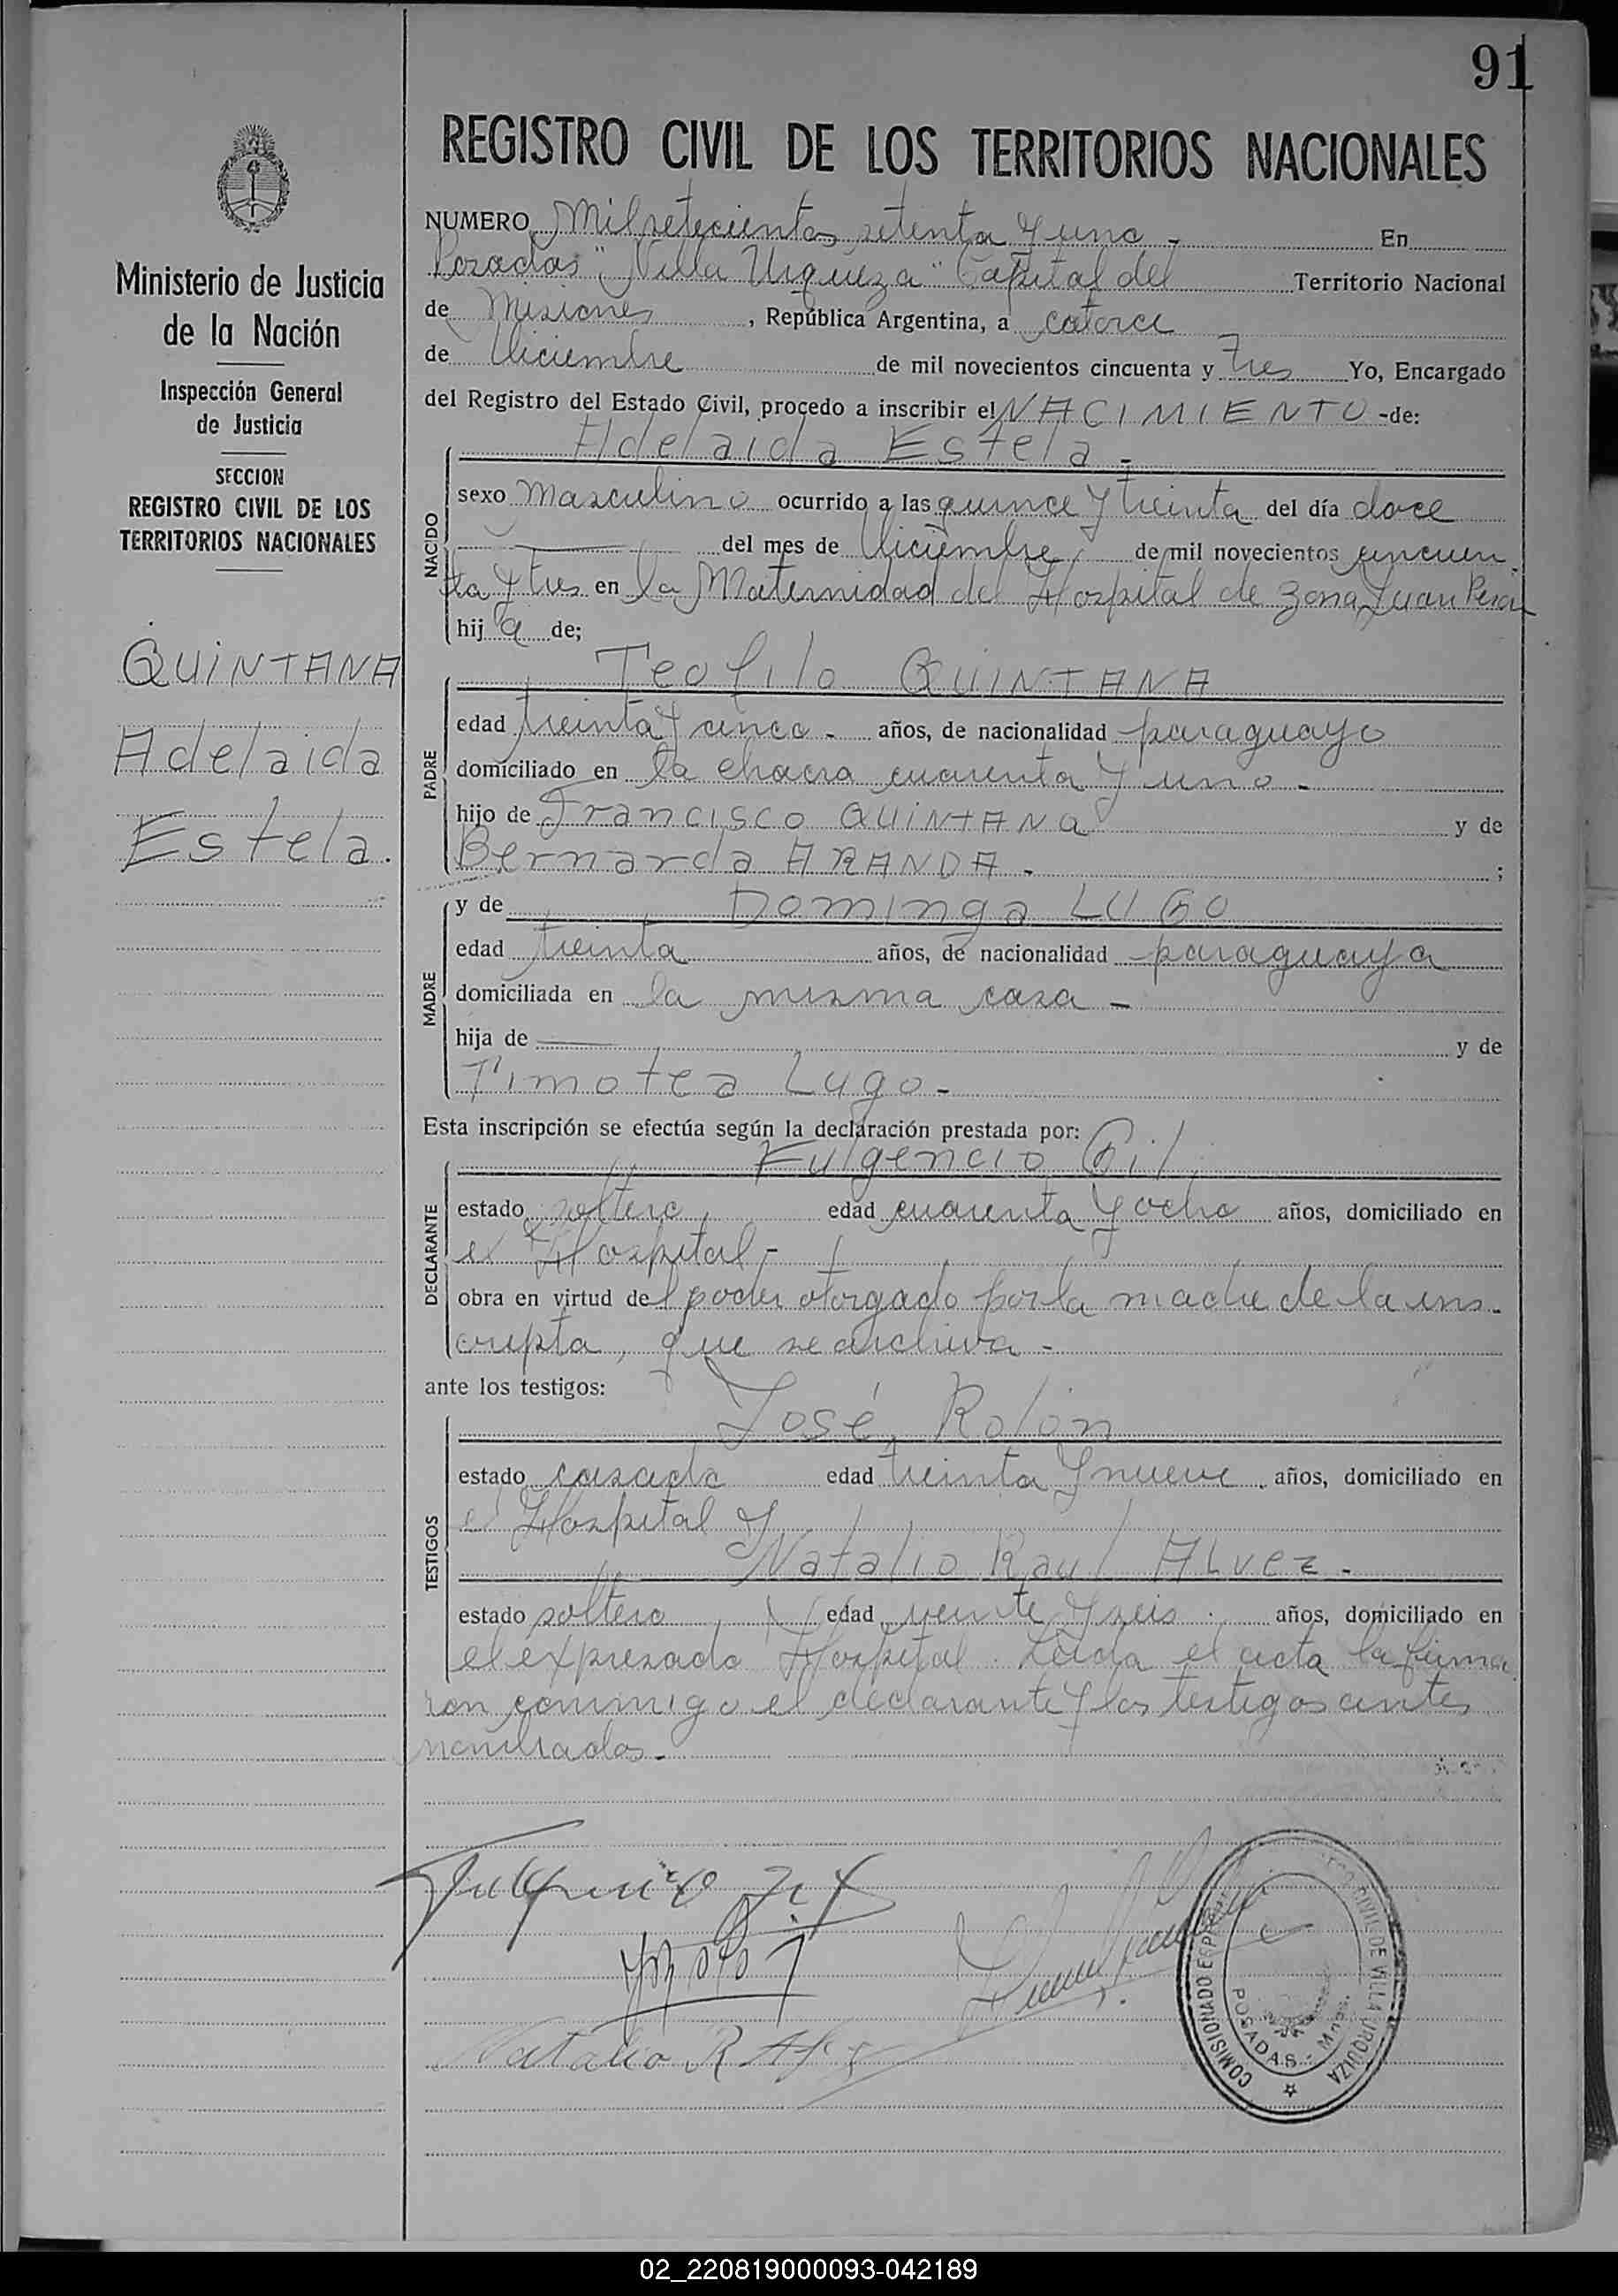 91
REGISTRO CIVIL DE LOS TERRITORIOS NACIONALES
Ministerio de Justicia
de la Nación
Inspección General
de Justicia
SECCION
REGISTRO CIVIL DE LOS
TERRITORIOS NACIONALES
QUINTANA
Adelaida
Estela.
NUMERO Milsetecientos setenta y uno - En
Posadas "Villa Urquiza" Capital del Territorio Nacional
de Misiones , República Argentina, a catorce
de Diciembre de mil novecientos cincuenta y tres Yo, Encargado
del Registro del Estado Civil, procedo a inscribir el NACIMIENTO -de:
NACIDO
Adelaida Estela -
sexo masculino ocurrido a las quince y treinta del día doce
del mes de Diciembre de mil novecientos cincuen
ta y tres en la Maternidad del Hospital de Zona Juan Peron
hij a de;
PADRE
Teofilo QUINTANA
edad treinta y cinco - años, de nacionalidad paraguayo
domiciliado en la chacra cuarenta y uno -
hijo de Francisco QUINTANA y de
Bernarda ARANDA - ;
MADRE
y de Dominga LUGO
edad treinta años, de nacionalidad paraguaya
domiciliada en la misma casa -
hija de — y de
Timotea Lugo -
Esta inscripción se efectúa según la declaración prestada por:
DECLARANTE
Fulgencio Gil
estado soltero edad cuarenta y ocho años, domiciliado en
el Hospital -
obra en virtud del poder otorgado por la madre de la ins-
cripta, que se archiva -
ante los testigos:
TESTIGOS
José Rolón
estado casado edad treinta y nueve años, domiciliado en
el Hospital y
Natalio Raul Alvez -
estado soltero edad veinte y seis años, domiciliado en
el expresado Hospital. Leida el acta la firma
ron conmigo el declarante y los testigos antes
nombrados -
Fulgencio Gil
Natalio R
COMISIONADO CIVIL DE VILLA URQUIZA
POSADAS - Mnes.
02_220819000093-042189